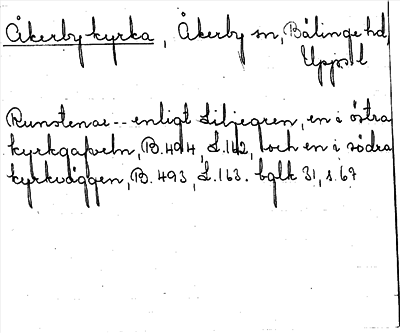 Åkerby kyrka, Åkerby sn, Bälinge hd,
Uppsl
Runstenar -- enligt Liljegren, en i östra
kyrkgafveln, B. 494, L. 162, och en i södra
kyrkväggen, B. 493, L. 163. bglk 31, s. 67